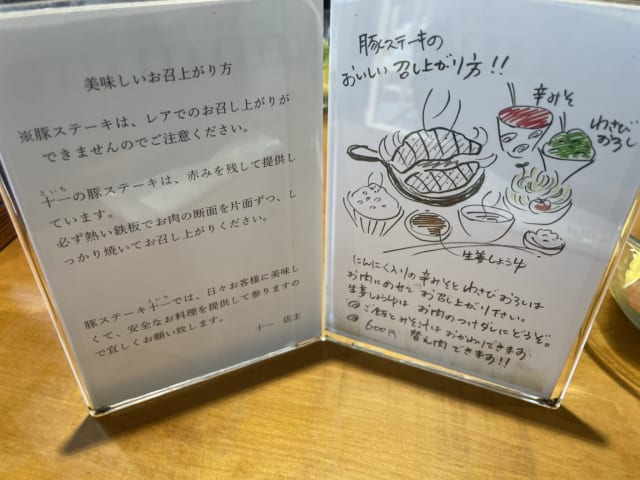 美味しいお召上がり方
※豚ステーキは、レアでのお召し上がりが
できませんのでご注意ください。
といち
十一の豚ステーキは、赤みを残して提供し
ています。
必ず熱い鉄板でお肉の断面を片面ずつ、し
っかり焼いてお召し上がりください。
といち
豚ステーキ十一では、日々お客様に美味し
くて、安全なお料理を提供して参りますの
で宜しくお願い致します。
十一 店主
豚ステーキの
おいしい召し上がり方!!
辛みそ
わさび
おろし
生姜しょうゆ
にんにく入りの辛みそとわさびおろしは
お肉にのせてお召し上がり下さい。
生姜しょうゆはお肉のつけダレにどうぞ。
@ご飯とみそ汁はおかわりできます。
@600円 替え肉できます!!